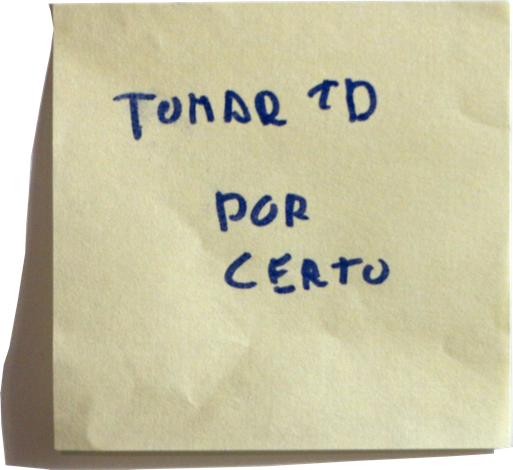 TOMAR TD
POR
CERTO